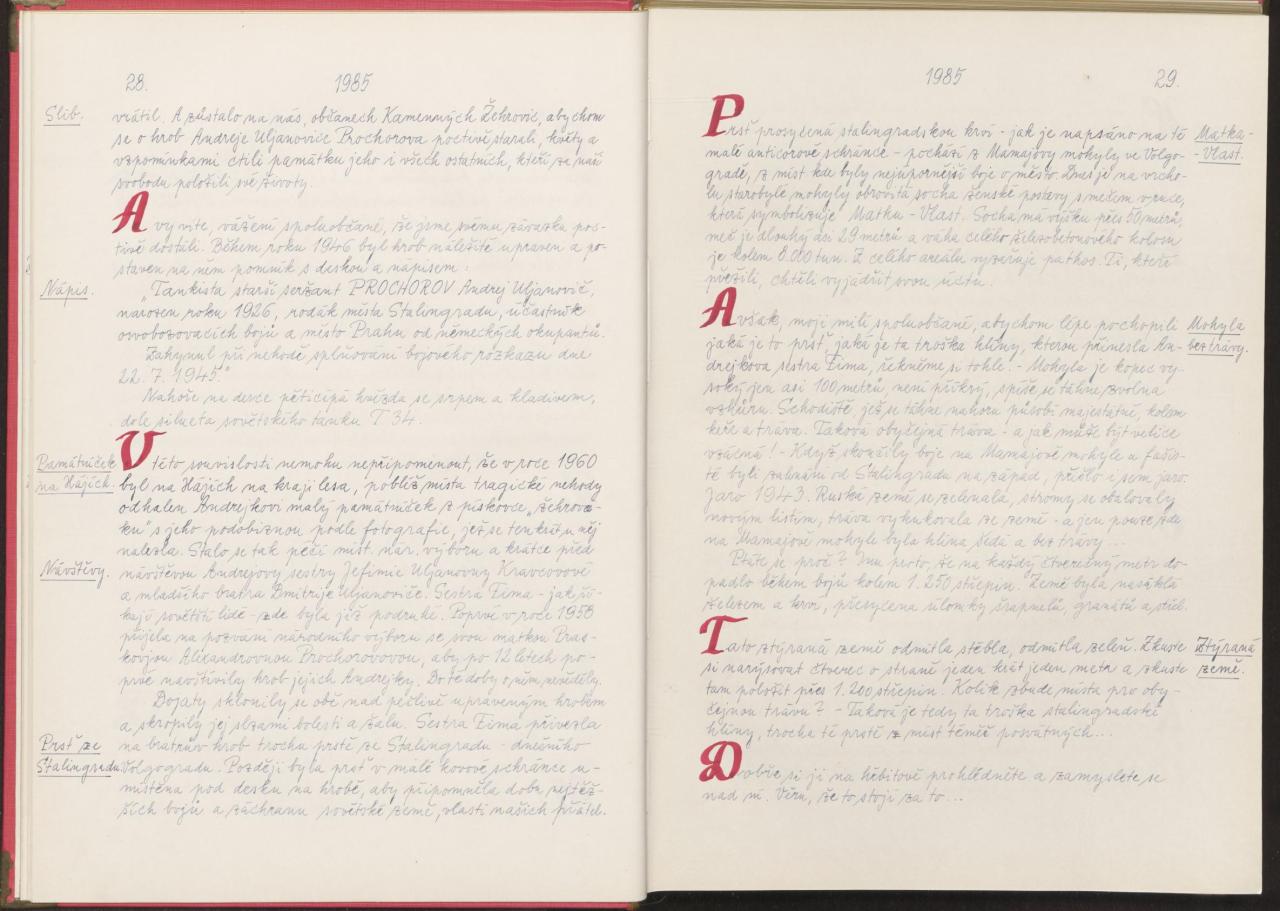 28.
1985
Slib.
vrátil. A zůstalo na nás, občanech Kamenných Žehrovic, abychom
se o hrob Andreje Uljanoviče Prochorova poctivě starali, květy a
vzpomínkami ctili památku jeho i všech ostatních, kteří za naši
svobodu položili své životy.
A vy víte, vážení spoluobčané, že jsme svému závazku poc-
tivě dostáli. Během roku 1946 byl hrob náležitě upraven a po-
staven na něm pomník s deskou a nápisem:
Nápis.
„Tankista starší seržant PROCHOROV Andrej Uljanovič,
narozen roku 1926, rodák města Stalingradu, účastník
osvobozovacích bojů a město Prahu od německých okupantů.
Zahynul při nehodě splňování bojového rozkazu dne
22. 7. 1945."
Nahoře na desce pěticípá hvězda se srpem a kladivem,
dole silueta sovětského tanku T 34.
Památníček
na Hájích.
V této souvislosti nemohu nepřipomenout, že v roce 1960
byl na Hájích na kraji lesa, poblíž místa tragické nehody
odhalen Andrejkovi malý památníček z pískovce „žehrová-
ku" s jeho podobiznou podle fotografie, jež se tenkrát u něj
nalezla. Stalo se tak péčí míst. nár. výboru a krátce před
Návštěvy.
návštěvou Andrejovy sestry Jefimie Uljanovny Kravcovové
a mladšího bratra Dmitrije Uljanoviče. Sestra Fima - jak ří-
kají sovětští lidé - zde byla již podruhé. Poprvé v roce 1958
přijela na pozvání národního výboru se svou matkou Pras-
kovjou Alexandrovnou Prochorovovou, aby po 12 letech po-
prvé navštívily hrob jejich Andrejky. Do té doby o něm nevěděly.
Dojaty sklonily se obě nad pečlivě upraveným hrobem
a skropily jej slzami bolesti a žalu. Sestra Fima přivezla
Prsť ze
Stalingradu.
na bratrův hrob trochu prstě ze Stalingradu - dnešního
Volgogradu. Později byla prsť v malé kovové schránce u-
místěna pod desku na hrobě, aby připomněla dobu nejtěž-
ších bojů a záchranu sovětské země, vlasti našich přátel.
1985
29.
Prsť prosycená stalingradskou krví - jak je napsáno na té
Matka-
-Vlast.
malé anticorové schránce - pochází z Mamajovy mohyly ve Volgo-
gradě, z míst kde byly nejúpornější boje o město. Dnes je na vrcho-
lu starobylé mohyly obrovitá socha ženské postavy s mečem v ruce,
která symbolizuje Matku - Vlast. Socha má výšku přes 50 metrů,
meč je dlouhý asi 29 metrů a váha celého železobetonového kolosu
je kolem 8.000 tun. Z celého areálu vyzařuje pathos. Ti, kteří
přežili, chtěli vyjádřit svou úctu.
Avšak, moji milí spoluobčané, abychom lépe pochopili
Mohyla
bez trávy.
jaká je to prsť, jaká je ta troška hlíny, kterou přinesla An-
drejkova sestra Fima, řekněme si tohle: - Mohyla je kopec vy-
soký jen asi 100 metrů, není příkrý, spíše se táhne zvolna
vzhůru. Schodiště, jež se táhne nahoru působí majestátně, kolem
keře a tráva. Taková obyčejná tráva - a jak může být velice
vzácná! - Když skončily boje na Mamajově mohyle a fašis-
té byli zahnáni od Stalingradu na západ, přišlo i sem jaro.
Jaro 1943. Ruská země se zelenala, stromy se obalovaly
novým listím, tráva vykukovala ze země - a jen pouze zde
na Mamajově mohyle byla hlína šedá a bez trávy...
Ptáte se proč? Inu proto, že na každý čtvereční metr do-
padlo během bojů kolem 1.250 střepin. Země byla nasáklá
železem a krví, přesycena úlomky šrapnelů, granátů a střel.
Tato ztýraná země odmítla stébla, odmítla zeleň. Zkuste
Ztýraná
země.
si narýsovat čtverec o straně jeden krát jeden metr a zkuste
tam položit přes 1.200 střepin. Kolik zbude místa pro oby-
čejnou trávu? - Taková je tedy ta troška stalingradské
hlíny, trocha té prstě z míst téměř posvátných...
Dobře si ji na hřbitově prohlédněte a zamyslete se
nad ní. Věru, že to stojí za to...